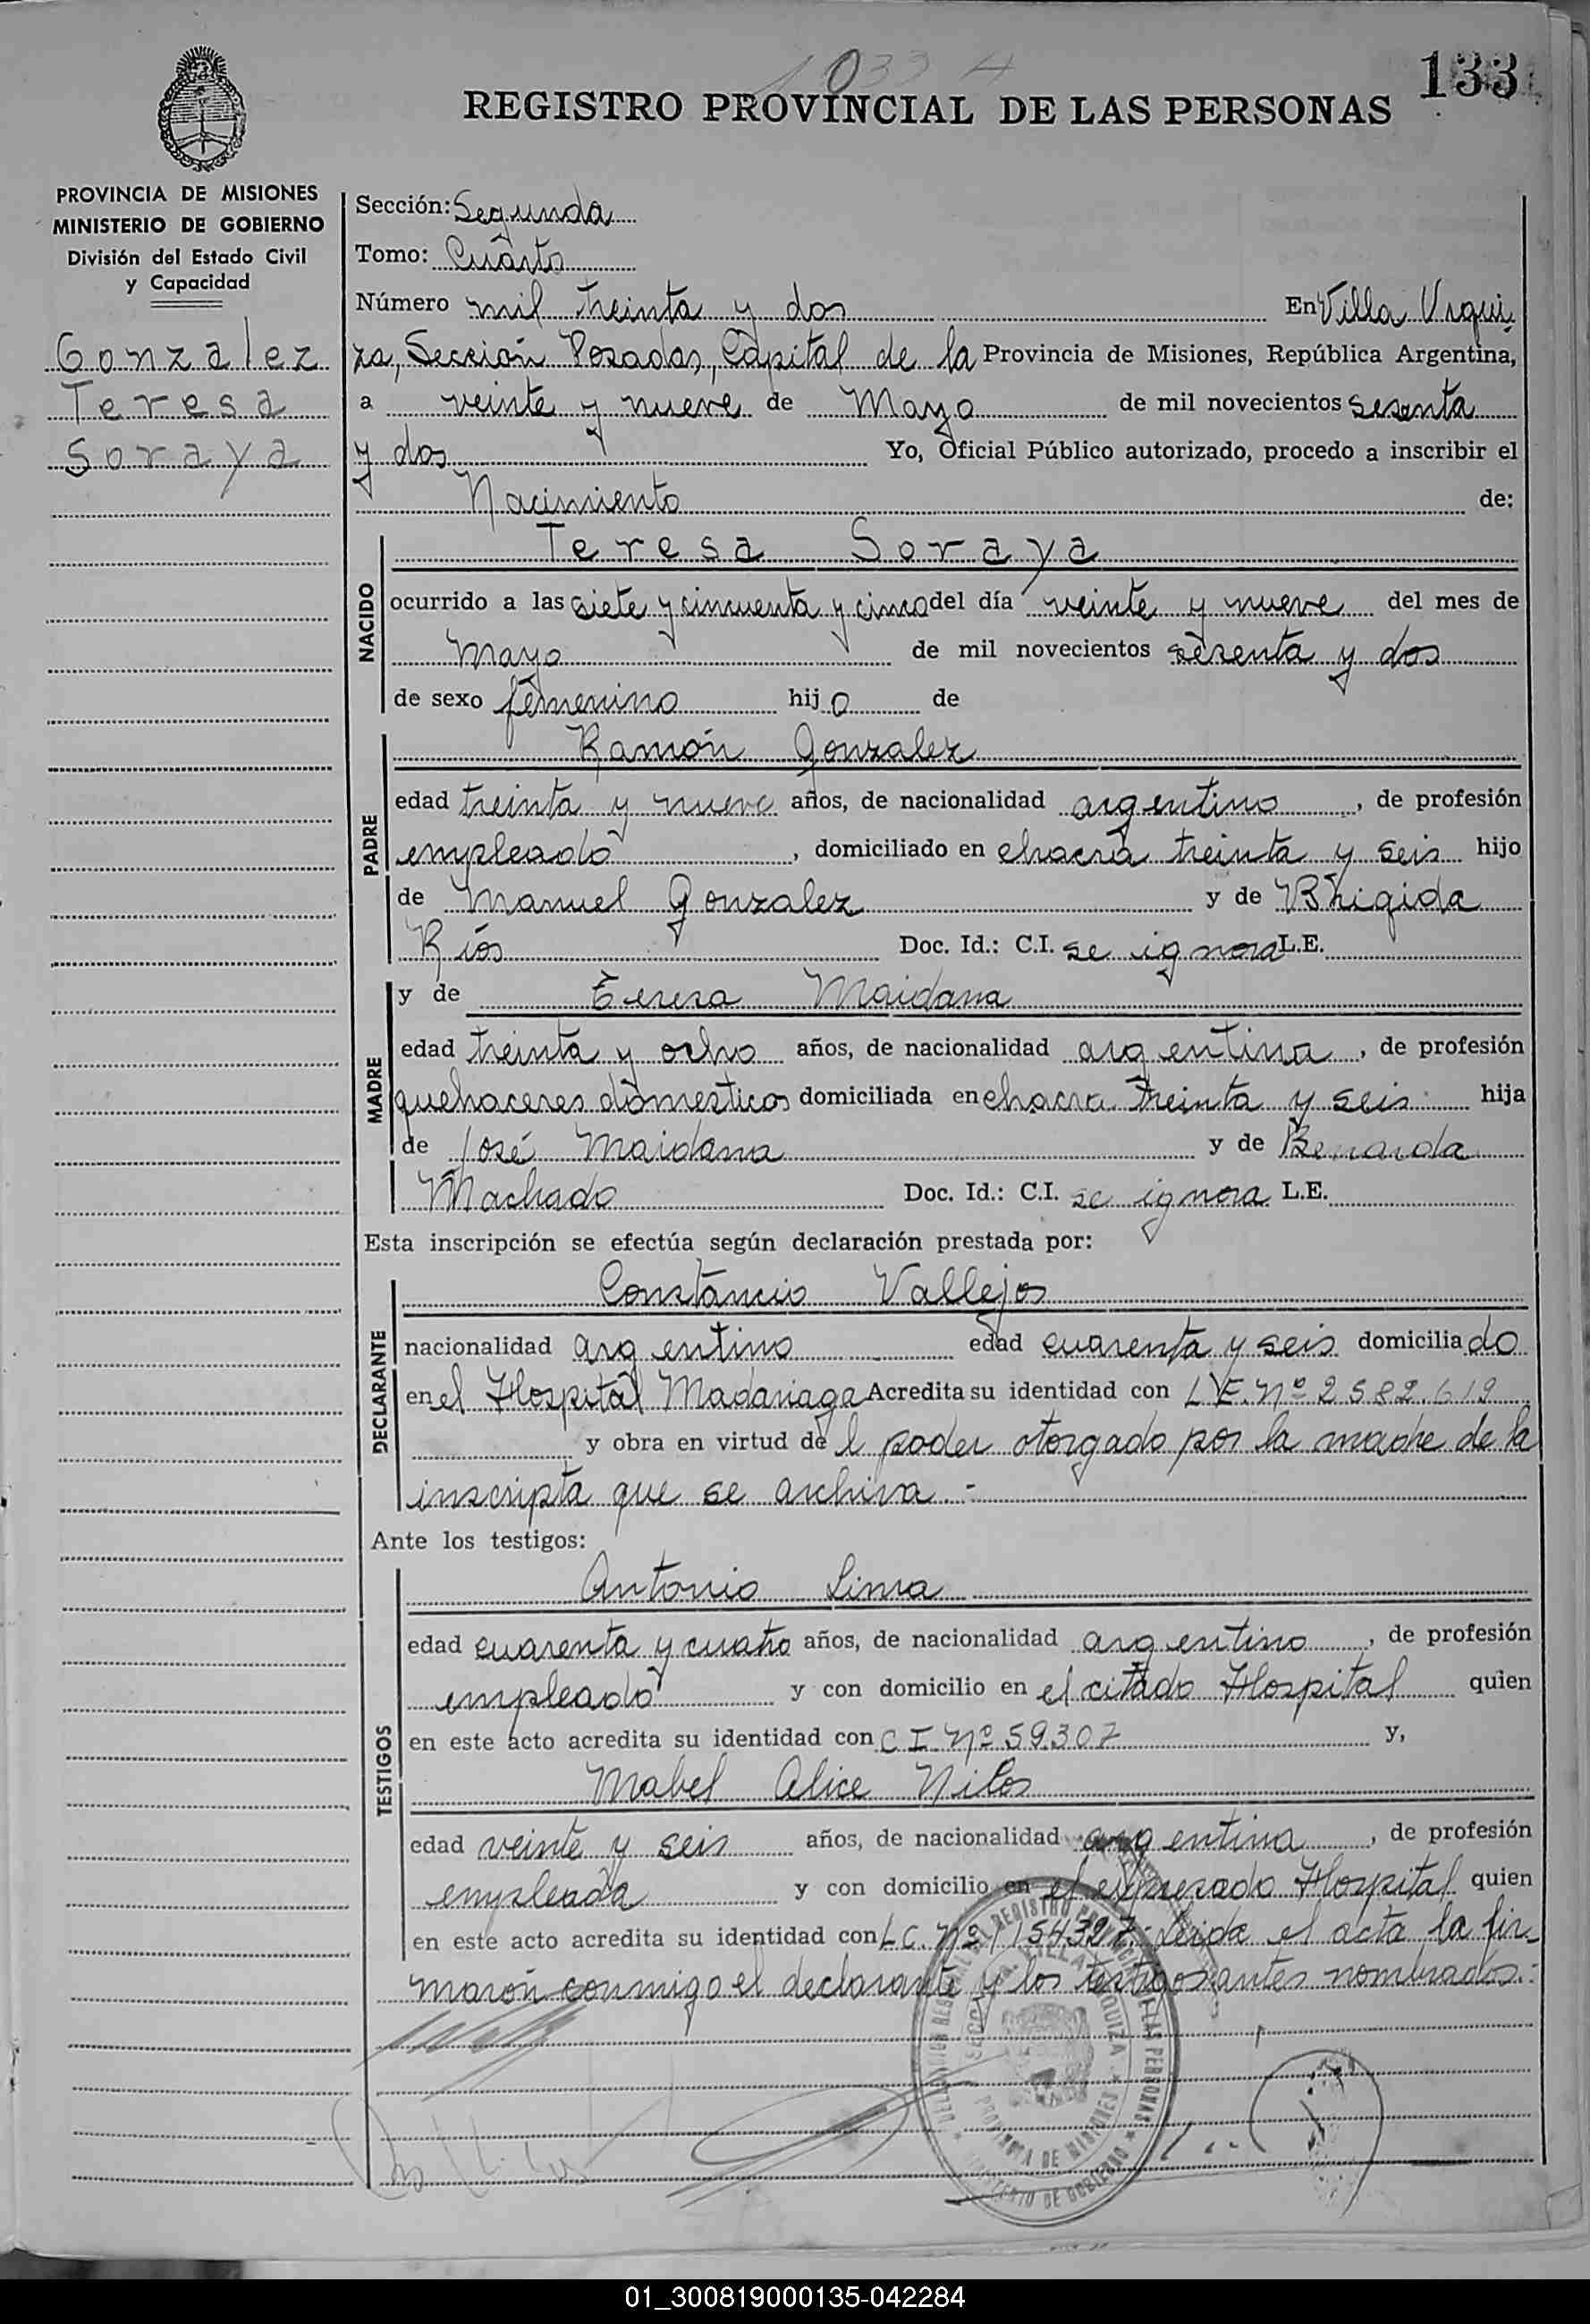 133
REGISTRO PROVINCIAL DE LAS PERSONAS
PROVINCIA DE MISIONES
MINISTERIO DE GOBIERNO
División del Estado Civil
y Capacidad
Gonzalez
Teresa
Soraya
Sección: Segunda
Tomo: Cuarto
Número mil treinta y dos En Villa Urqui
za, Sección Posadas, Capital de la Provincia de Misiones, República Argentina,
a veinte y nueve de Mayo de mil novecientos sesenta
y dos Yo, Oficial Público autorizado, procedo a inscribir el
Nacimiento de:
Teresa Soraya
NACIDO
ocurrido a las siete y cincuenta y cinco del día veinte y nueve del mes de
mayo de mil novecientos sesenta y dos
de sexo femenino hijo de
Ramón Gonzalez
PADRE
edad treinta y nueve años, de nacionalidad argentino, de profesión
empleado, domiciliado en chacra treinta y seis hijo
de Manuel Gonzalez y de Brigida
Ríos Doc. Id.: C.I. se ignora L.E.
MADRE
y de Teresa Maidana
edad treinta y ocho años, de nacionalidad argentina, de profesión
quehaceres domesticos domiciliada en chacra treinta y seis hija
de José Maidana y de
Machado Doc. Id.: C.I. se ignora L.E.
Esta inscripción se efectúa según declaración prestada por:
Constancio Vallejos
DECLARANTE
nacionalidad argentino edad cuarenta y seis domiciliado
en el Hospital Madariaga Acredita su identidad con L.E. Nº 2582.619
y obra en virtud del poder otorgado por la madre de la
inscripta que se archiva.-
Ante los testigos:
TESTIGOS
Antonio Lima
edad cuarenta y cuatro años, de nacionalidad argentino, de profesión
empleado y con domicilio en el citado Hospital quien
en este acto acredita su identidad con C.I. Nº 59.307 y,
Mabel Alice
edad veinte y seis años, de nacionalidad argentina, de profesión
empleada y con domicilio en el expresado Hospital quien
en este acto acredita su identidad con L.C. Nº Leida el acta la fir-
maron conmigo el declarante y los testigos antes nombrados.-
01_300819000135-042284